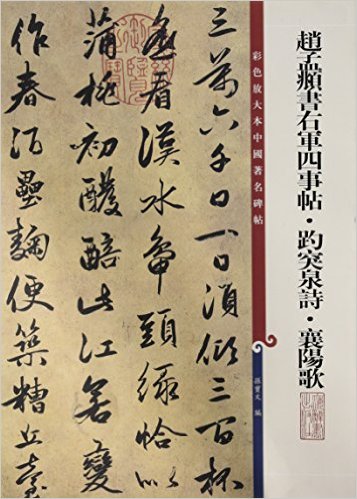 趙孟頫書右軍四事帖・趵突泉詩・襄陽歌
彩色放大本中國著名碑帖
孫寶文 編
三萬六千日一日須傾三百杯
遙看漢水鴨頭綠恰似
蒲桃初醱醅此江若變
作春酒壘麴便築糟丘臺